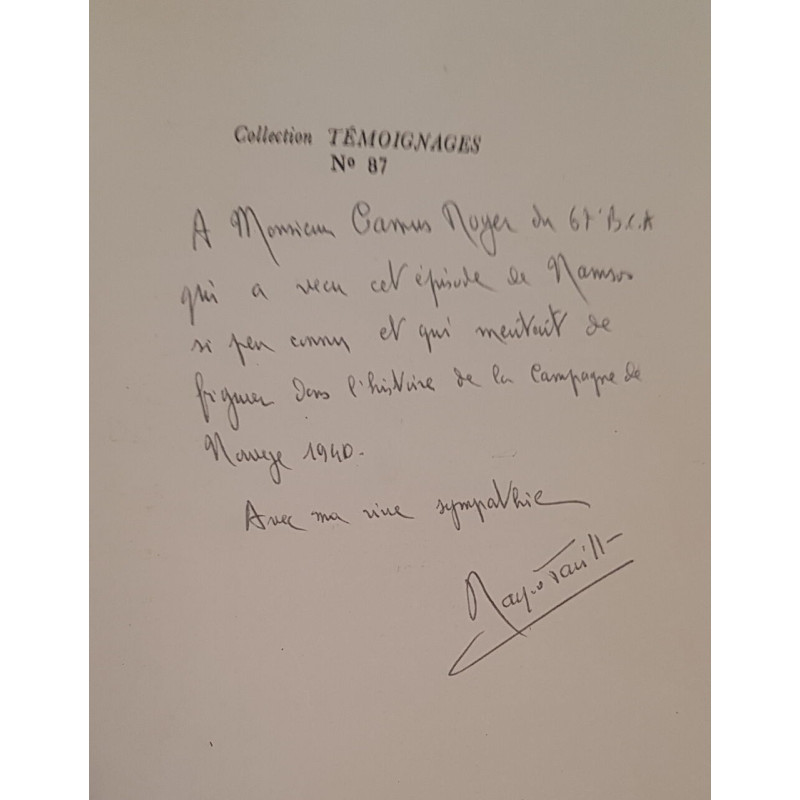 Collection TÉMOIGNAGES
Nº 87
A Monsieur Camus Royer du 67e B.C.A
qui a vécu cet épisode de Namsos
si peu connu et qui méritait de
figurer dans l'histoire de la Campagne de
Norvege 1940.
Avec ma vive sympathie